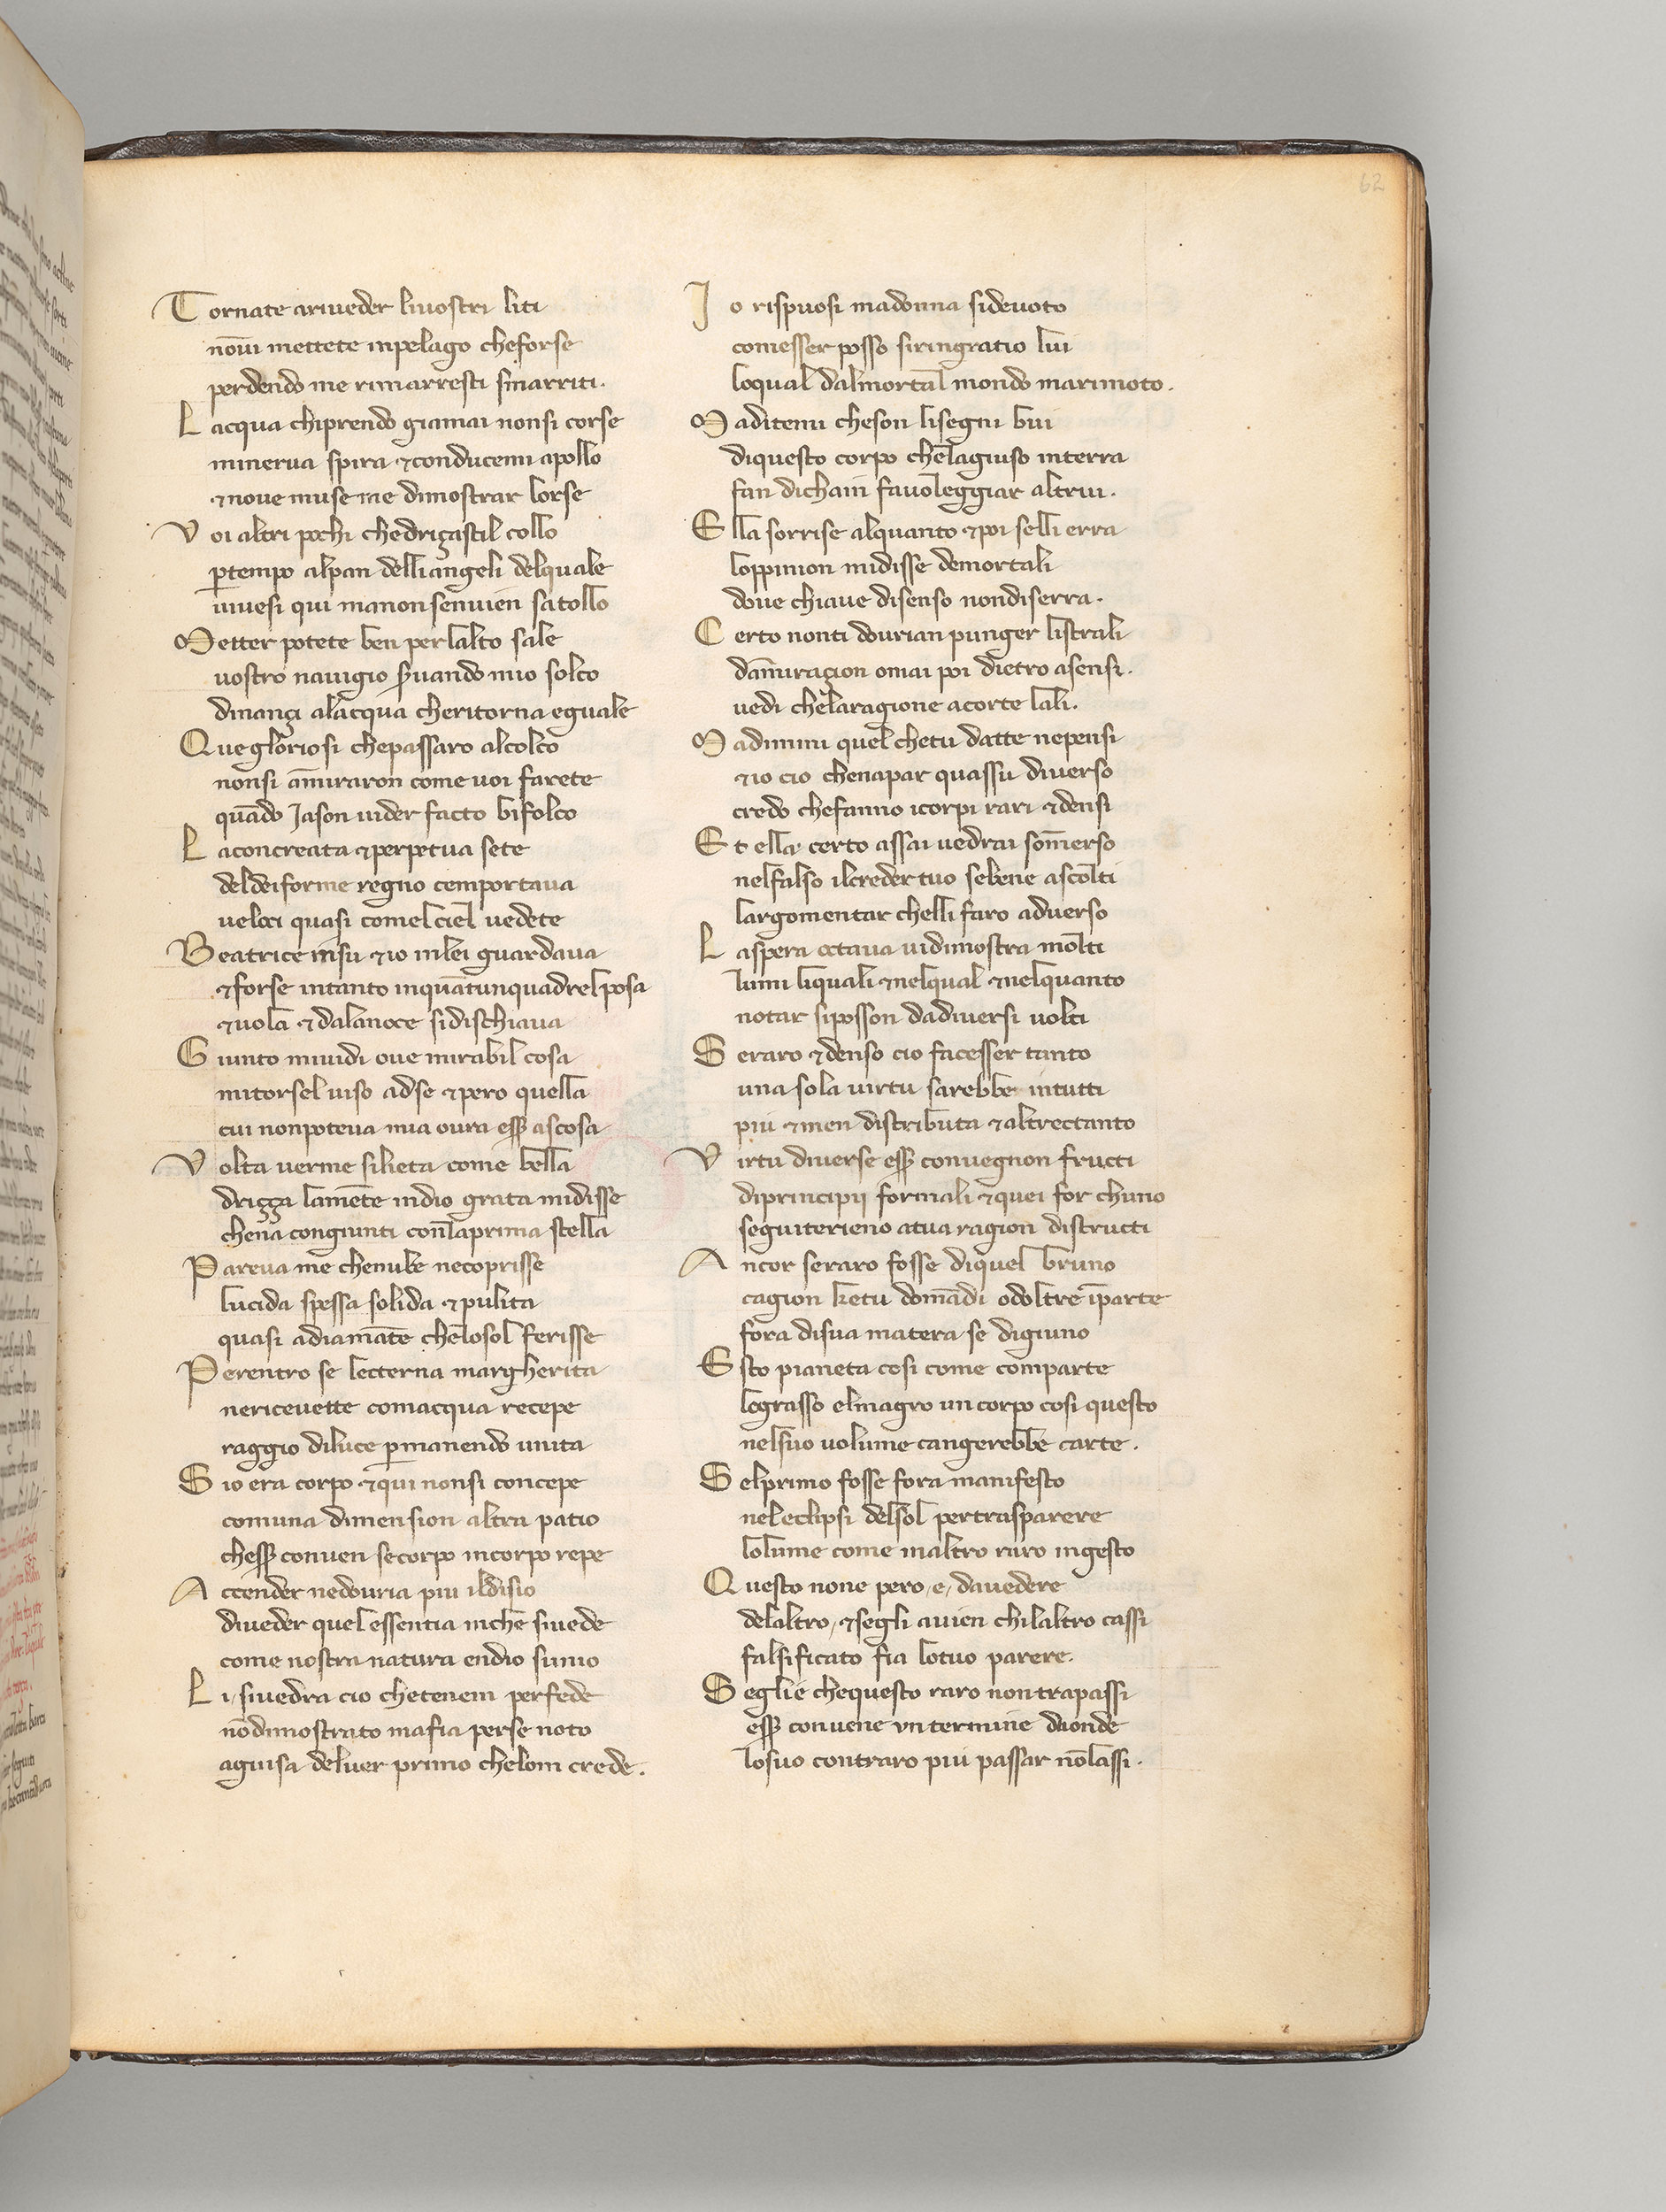 62
Tornate ariueder liuostri liti
nōui mettete inpelago cheforse
perdendo me rimarresti smarriti.
Lacqua chiprendo giamai nonsi corse
minerua spira ⁊conducemi apollo
⁊noue muse me dimostrar lorse
Voi altri pochi chedriçastil collo
ꝑtempo alpan delliangeli delquale
uiuesi qui manonsenuien satollo
Metter potete ben perlalto sale
uostro nauigio ẜuando mio solco
dinançi alacqua cheritorna eguale
Quegloriosi chepassaro alcolco
nonsi āmiraron come uoi farete
quādo Jason uider facto bifolco
Laconcreata ⁊perpetua sete
deldeiforme regno cemportaua
veloci quasi comelciel vedete
Beatrice insu ⁊io inlei guardaua
⁊forse intanto inquātunquadrelposa
⁊uola ⁊dalanoce sidischiaua
Giunto miuidi oue mirabil cosa
mitorsel uiso adse ⁊pero quella
cui nonpoteua mia oura eẜẜ ascosa
Volta uerme silieta come bella
driçça lamēte indio grata midisse
chena congiunti conlaprima stella
Pareua me chenube necoprisse
lucida spessa solida ⁊pulita
quasi adiamāte chelosol ferisse
Perentro se lecterna margherita
nericeuette comacqua recepe
raggio diluce ꝑmanendo unita
Sio era corpo ⁊qui nonsi concepe
comuna dimension altra patio
cheẜẜ conuen secorpo incorpo repe
Accender nedouria piu ildisio
diueder quel essentia inche siuede
come nostra natura endio sunio
Li, siuedra cio chetenem perfede
nōdimostrato mafia perse noto
aguisa deluer primo chelom crede.
Jo rispuosi madonna sideuoto
comesser posso siringratio lui
loqual dalmortal mondo marimoto.
Maditemi cheson lisegni bui
diquesto corpo chelaguiso interra
fan dichain fauoleggiar altrui.
Ella sorrise alquanto ⁊poi selli erra
loppinion midisse demortali
doue chiaue disenso nondiserra.
Certo nonti dourian punger listrali
dāmiraçion omai poi dietro asensi.
uedi chelaragione acorte lali.
Madimmi quel chetu datte nepensi
⁊io cio chenapar quassu diuerso
credo chefanno icorpi rari ⁊densi
Et ella certo assai uedrai somerso
nelfalso ilcreder tuo sebene ascolti
largomentar chelli faro aduerso
Laspera octaua uidimostra molti
lumi liquali ⁊nelqual ⁊nelquanto
notar siposson dadiuersi uolti
Seraro ⁊denso cio facesser tanto
una sola uirtu sarebbe intutti
piu ⁊men distributa ⁊altrectanto
Virtu diuerse eẜẜ conuegnon fructi
diprincipij formali ⁊quei for chuno
seguiterieno atua ragion distructi
Ancor seraro fosse diquel bruno
cagion ketu domādi odoltre īparte
fora disua matera se digiuno
Esto pianeta cosi come comparte
lograsso elmagro un corpo cosi questo
nelsuo uolume cangerebbe carte.
Selprimo fosse fora manifesto
nel eclipsi delsol pertrasparere
lolume come inaltro raro ingesto
Questo none pero, e, dauedere
delaltro, ⁊segli auien chilaltro cassi
falsificato fia lotuo parere.
Seglie chequesto raro nontrapassi
eẜẜ conuene vn termine daonde
losuo contraro piu passar nōlassi.